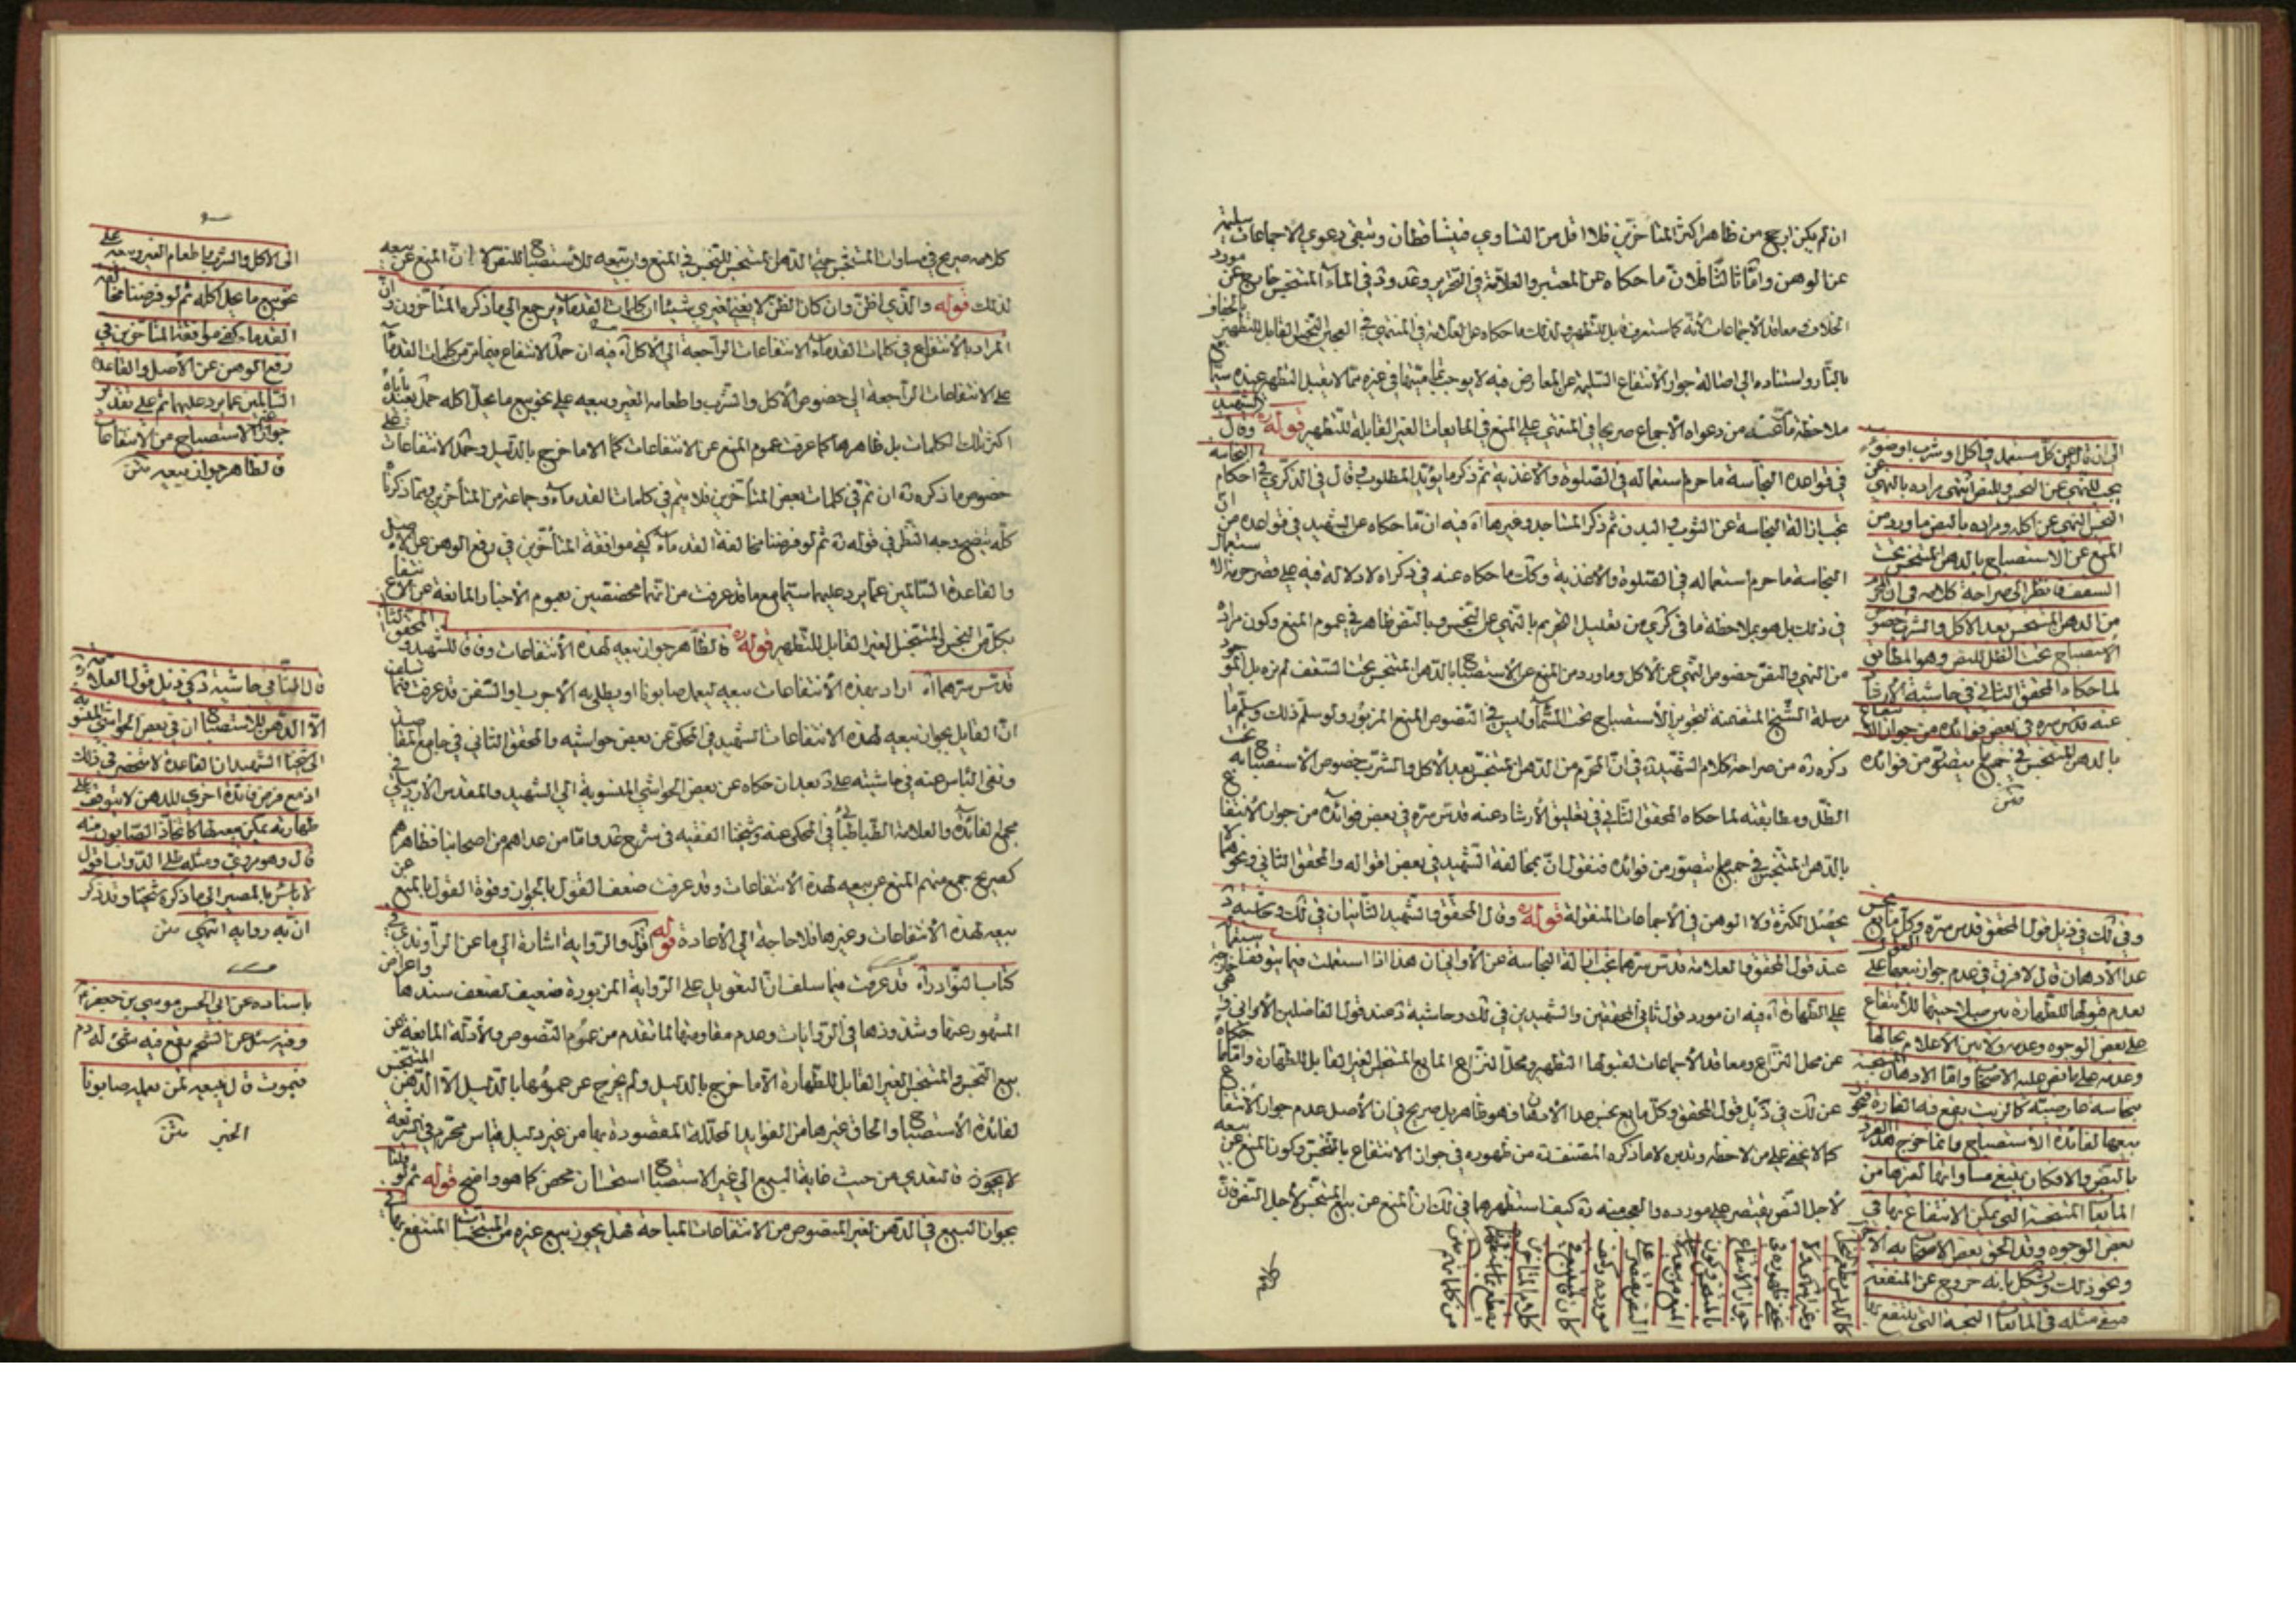 ان لم يكن ارجح من ظاهر اكثر المتأخرين فلا اقل من التساوي فيتساقطان وتبقى دعوى الاجماعات سليمة
عن الوهن واما ثالثا فلان ما حكاه عن المعتبر والعلامة في التحرير وعد وذ في الماء المتنجس خارج عن مورد
الخلاف ومعاقد الاجماعات لانه كما ستعرف قابل للتطهير وكذلك ما حكاه عن العلامة في المنتهى في العجين النجس القابل للتطهير
بالنار واستناده الى اصالة جواز الانتفاع السليمة عن المعارض فيه لا يوجب تماميتها في غيره مما لا يقبل التطهير عنده سيما
ملاحظة ما من دعواه الاجماع صريحا في المنتهى على المنع في المايعات الغير القابلة للتطهير قوله ره وقال الشهيد
في قواعده النجاسة ما حرم استعماله في الصلوة والاغذية ثم ذكر ما يؤيد المطلوب وقال في الذكرى في احكام النجاسة
تجب ازالة النجاسة عن الثوب والبدن ثم ذكر المساجد وغيرها اه فيه ان ما حكاه عن الشهيد في قواعده من ان
النجاسة ما حرم استعماله في الصلوة والاغذية وكك ما حكاه عنه في ذكراه لا دلالة فيه على قصر حرمة الاستعمال
في ذلك بل هو بملاحظة ما في كرى من تعليل التحريم بالنهي عن النجس وبالنص ظاهر في عموم المنع وكون مراده
من النهي والنص خصوص النهي عن الاكل وما ورد من المنع عن الاستصباح بالدهن المتنجس تحت السقف لم نره بل الموجود
مرسلة الشيخ المتضمنة لتجويز الاستصباح تحت السماء وليس في النصوص المنع المزبور ولو سلم ذلك وسلم ما
ذكره ره من صراحة كلام الشهيد ره في ان المحرم من الدهن المتنجس بعد الاكل والشرب خصوص الاستصباح به تحت
الظل ومطابقته لما حكاه المحقق الثاني في تعليق الارشاد عنه قدس سره في بعض فوائده من جواز الانتفاع
بالدهن المتنجس في جميع ما يتصور من فوائده فنقول ان بمخالفة الشهيد في بعض اقواله والمحقق الثاني ونحوهما لا
يحصل الكثرة ولا الوهن في الاجماعات المنقولة قوله ره وقال المحقق والشهيد الثانيان في لك وحاشية د
عند قول المحقق والعلامة قدس سرهما تجب ازالة النجاسة عن الاواني ان هذا اذا استعملت فيما يتوقف استعماله
على الطهارة اه فيه ان مورد قول ثاني المحققين والشهيدين في لك وحاشية د عند قول الفاضلين الاواني وهي خارجة
عن محل النزاع ومعاقد الاجماعات لقبولها التطهير ومحل النزاع المايع المتنجس الغير القابل للطهارة واما ما حكاه
عن لك في ذيل قول المحقق وكل مايع نجس عدا الادهان فهو ظاهر بل صريح في ان الاصل عدم جواز الانتفاع
كما لا يخفى على من لاحظه وتدبره لا ما ذكره المصنف ره من ظهوره في جواز الانتفاع بالمتنجس وكون المنع عن بيعه
لاجل النص يقتصر على مورده والعجب منه ره كيف استظهرهما في لك ان المنع عن بيع المتنجس لاجل النص فان
الى ان قال عن كل مستعمل في اكل او شرب او ضوء
يجب للنهي عن النجس وللنص انتهى مراده بالنهي عن
النجس النهي عن اكله ومراده بالنص ما ورد من
المنع عن الاستصباح بالدهن المتنجس تحت
السقف فانظر الى صراحة كلامه في ان المحرم
من الدهن المتنجس بعد الاكل والشرب خصوص
الاستصباح تحت الظل للنص وهو المطابق
لما حكاه المحقق الثاني في حاشية الارشاد
عنه قدس سره في بعض فوائده من جواز الانتفاع
بالدهن المتنجس في جميع ما يتصور من فوائده
متن
وفي لك في ذيل قول المحقق قدس سره وكل مايع نجس
عدا الادهان قال لا فرق في عدم جواز بيعها على القول
بعدم قبولها للطهارة بين صلاحيتها للانتفاع
على بعض الوجوه وعدمه ولا بين الاعلام بحالها
وعدمه على ما نص عليه الاصحاب واما الادهان المتنجسة
بنجاسة عارضية كالزيت يقع فيه الفارة فيجوز
بيعها لفائدة الاستصباح وانما خرج هذا الفرد
بالنص والا فكان ينبغي مساواتها لغيرها من
المايعات المتنجسة التي يمكن الانتفاع بها في
بعض الوجوه وقد الحق بعض الاصحاب به
ونحو ذلك ويشكل بانه خروج عن المنفعة
مع مثله في المايعات النجسة التي ينتفع
كلامه صريح في مساوات المتنجس حتى الدهن المتنجس للنجس في المنع وان بيعه للاستصباح للنص لا ان المنع عن بيعه
لذلك قوله والذي اظن وان كان الظن لا يغني لغيري شيئا ان كلمات القدماء يرجع الى ما ذكره المتأخرون وان
المراد بالانتفاع في كلمات القدماء الانتفاعات الراجعة الى الاكل اه فيه ان حمل الانتفاع فيما مر من كلمات القدماء
على الانتفاعات الراجعة الى خصوص الاكل والشرب واطعام الغير وبيعه على نحو بيع ما يحل اكله حمل بعيد يأباه
اكثر تلك الكلمات بل ظاهرها كما عرفت عموم المنع عن الانتفاعات كلها الا ما خرج بالدليل وحمل الانتفاعات على
خصوص ما ذكره ره ان تم في كلمات بعض المتأخرين فلا يتم في كلمات القدماء وجماعة من المتأخرين ومما ذكرنا
كله يتضح وجه النظر في قوله ره ثم لو فرضنا مخالفة القدماء كفى موافقة المتأخرين في رفع الوهن عن الاصل
والقاعدة السالمين عما يرد عليهما سيما مع ما قد عرفت من انهما مخصصين بعموم الاخبار المانعة عن الانتفاع
بكل من النجس والمتنجس الغير القابل للتطهير قوله ره فالظاهر جواز بيعه لهذه الانتفاعات وفاقا للشهيد والمحقق الثاني
قدس سرهما اه اراد بهذه الانتفاعات بيعه ليعمل صابونا او يطلى به الاجرب او السفن قد عرفت فيما سلف
ان القايل بجواز بيعه لهذه الانتفاعات الشهيد في المحكي عن بعض حواشيه والمحقق الثاني في جامع المقاصد
ونفى الباس عنه في حاشيته على د بعد ان حكاه عن بعض الحواشي المنسوبة الى الشهيد والمقدس الاردبيلي في
مجمع الفائدة والعلامة الطباطبائي في المحكي عنه وشيخنا الفقيه في شرح عد واما من عداهم من اصحابنا فظاهرهم
كصريح جمع منهم المنع عن بيعه لهذه الانتفاعات وقد عرفت ضعف القول بالجواز وقوة القول بالمنع عن
بيعه لهذه الانتفاعات وغيرها فلا حاجة الى الاعادة قوله اقول والرواية اشارة الى ما عن الراوندي في
كتاب النوادر اه قد عرفت فيما سلف ان التعويل على الرواية المزبورة ضعيف لضعف سندها واعراض
المشهور عنها وشذوذها في الروايات وعدم مقاومتها لما تقدم من عموم النصوص والادلة المانعة عن
بيع النجس والمتنجس الغير القابل للطهارة الا ما خرج بالدليل ولم يخرج عن عمومها بالدليل الا الدهن المتنجس
لفائدة الاستصباح والحاق غيرها من الفوايد المحللة المقصودة بها من غير دليل قياس محرم في الشريعة
لا يجوز فالتعدي من حيث غاية البيع الى غير الاستصباح استحسان محض كما هو واضح قوله ثم لو قلنا
بجواز البيع في الدهن لغير المنصوص من الانتفاعات المباحة فهل يجوز بيع غيره من المتنجسات المنتفع بها في
الى الاكل والشرب واطعام الغير وبيعه على
نحو بيع ما يحل اكله ثم لو فرضنا مخالفة
القدماء كفى موافقة المتأخرين في
رفع الوهن عن الاصل والقاعدة
السالمين عما يرد عليهما ثم على تقدير
جواز غير الاستصباح من الانتفاعات
فالظاهر جواز بيعه متن
قال الثاني في حاشية د في ذيل قول العلامة ره
الا الدهن للاستصباح ان في بعض الحواشي المنسوبة
الى شيخنا الشهيد ان الفائدة لا تنحصر في ذلك
اذ مع فرض فائدة اخرى للدهن لا يتوقف على
طهارته يمكن بيعها كاتخاذ الصابون منه
قال وهو مروي ومثله طلي الدواب اقول
لا باس بالمصير الى ما ذكره شيخنا وقد ذكر
ان به رواية انتهى متن
باسناده عن ابي الحسن موسى بن جعفر ع
وفيه سئل عن الشحم يقع فيه شيء له دم
فيموت قال تبيعه لمن يعمله صابونا
الخبر متن